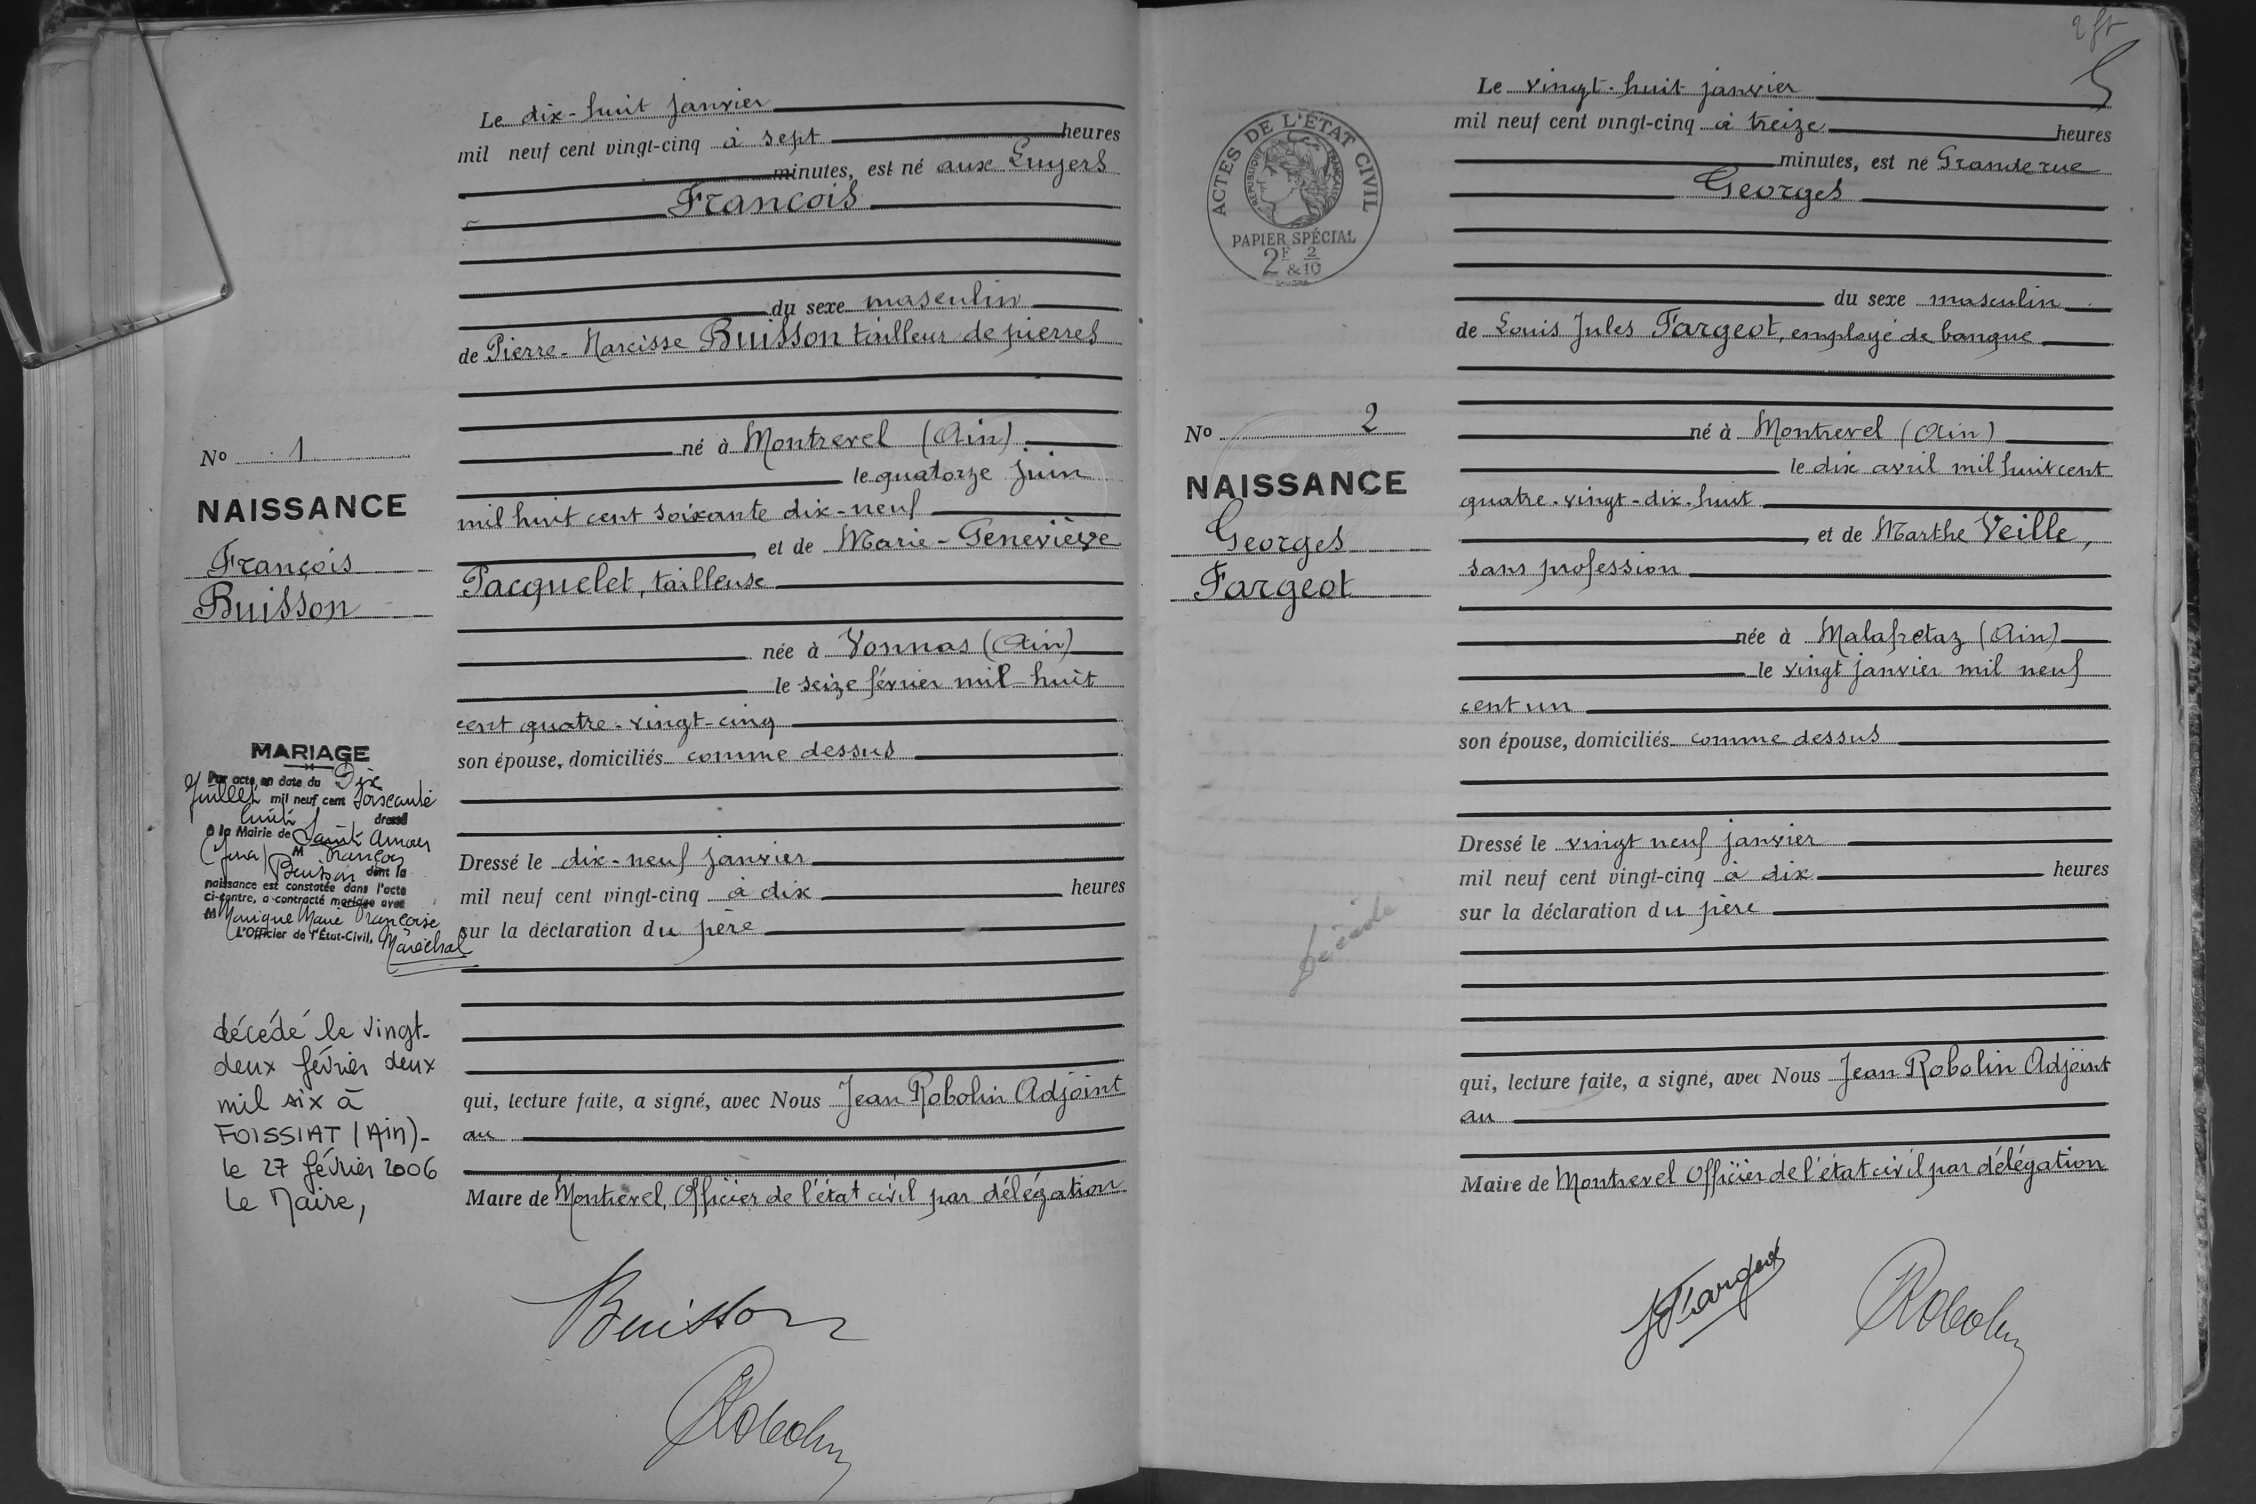 Le dix-huit janvier
mil neuf cent vingt-cinq à sept heures
minutes, est né aux Luyers
François
du sexe masculin
de Pierre-Narcisse Buisson tailleur de pierres
né à Montrevel (Ain)
le quatorze juin
mil huit cent soixante dix-neuf
et de Marie-Geneviève
Pacquelet, tailleuse
née à Vonnas (Ain)
le seize février mil huit
cent quatre-vingt-cinq
son épouse, domiciliés comme dessus
Dressé le dix-neuf janvier
mil neuf cent vingt-cinq à dix heures
sur la déclaration du père
qui, lecture faite, a signé, avec Nous Jean Robolin Adjoint
au
Maire de Montrevel, Officier de l'état civil par délégation
Buisson
Robolin
No 1
NAISSANCE
François
Buisson
MARIAGE
Par acte en date du Dix
Juillet mil neuf cent soixante
huit dressé
à la Mairie de Saint Amour
(Jura) M François
Buisson dont la
naissance est constatée dans l'acte
ci-contre, a contracté mariage avec
M Monique Marie Françoise
L'Officier de l'État-Civil, Maréchal
décédé le vingt-
deux février deux
mil six à
FOISSIAT (Ain)-
le 27 février 2006
Le Maire,
Le vingt-huit janvier
mil neuf cent vingt-cinq à treize heures
minutes, est né Grande rue
Georges
du sexe masculin
de Louis Jules Fargeot, employé de banque
né à Montrevel (Ain)
le dix avril mil huit cent
quatre-vingt-dix-huit
et de Marthe Veille,
sans profession
née à Malafretaz (Ain)
le vingt janvier mil neuf
cent un
son épouse, domiciliés comme dessus
Dressé le vingt neuf janvier
mil neuf cent vingt-cinq à dix heures
sur la déclaration du père
qui, lecture faite, a signé, avec Nous Jean Robolin Adjoint
au
Maire de Montrevel Officier de l'état civil par délégation
Fargeot
Robolin
ACTES DE L'ÉTAT CIVIL
RÉPUBLIQUE FRANÇAISE
PAPIER SPÉCIAL
2F & 2/10
No 2
NAISSANCE
Georges
Fargeot